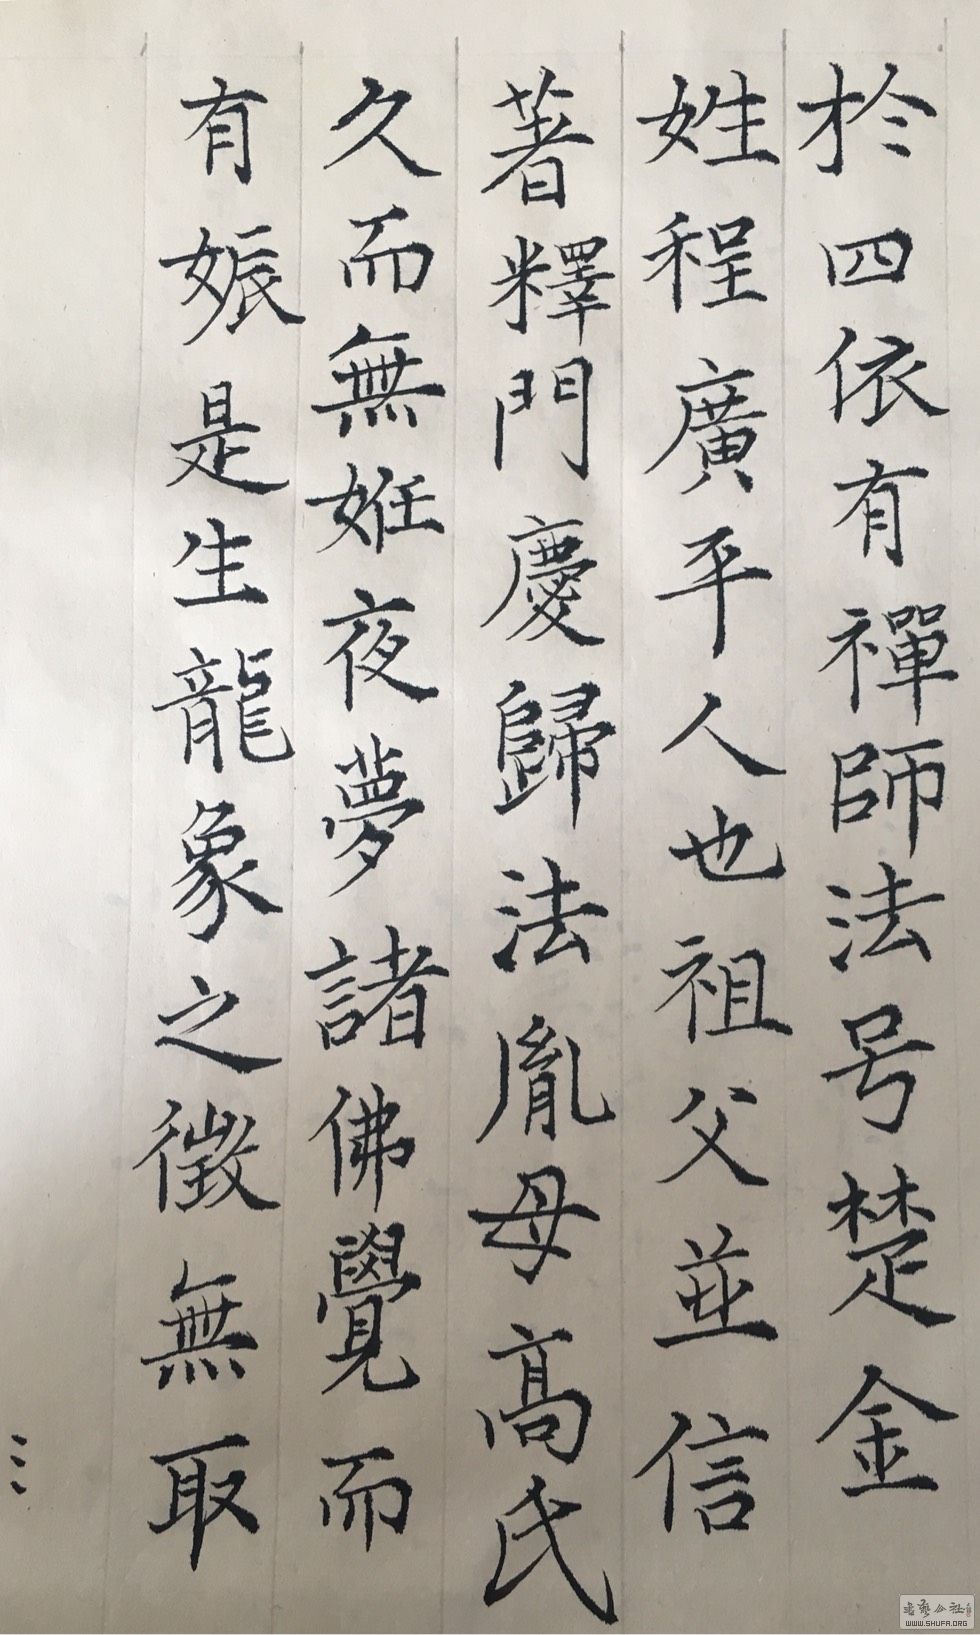 於四依有禪師法号楚金
姓程廣平人也祖父並信
著釋門慶歸法胤母高氏
久而無姙夜夢諸佛覺而
有娠是生龍象之徵無取
书艺公社
WWW.SHUFA.ORG